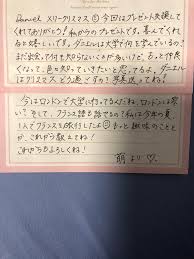 Daniel メリークリスマス☺ 今回はプレゼント交換して
くれてありがとう! 私からのプレゼントです。喜んでくれ
ると嬉しいです。ダニエルは大学で何を学んでいるの?
まだ出会って何も知らないことが多いけど、もっと仲良く
なって、色々知っていきたいと思ってるよ。ダニエル
はクリスマスどう過ごすの? 写真送ってね!
今はロンドンで大学に行ってるんだね。ロンドンは寒
い? そして、フランス語も話せるの? 私は今年の夏
1人でフランスを旅行したよ☺ もっと趣味のことと
か、これから教えてね!
これからもよろしくね!
萌より♡